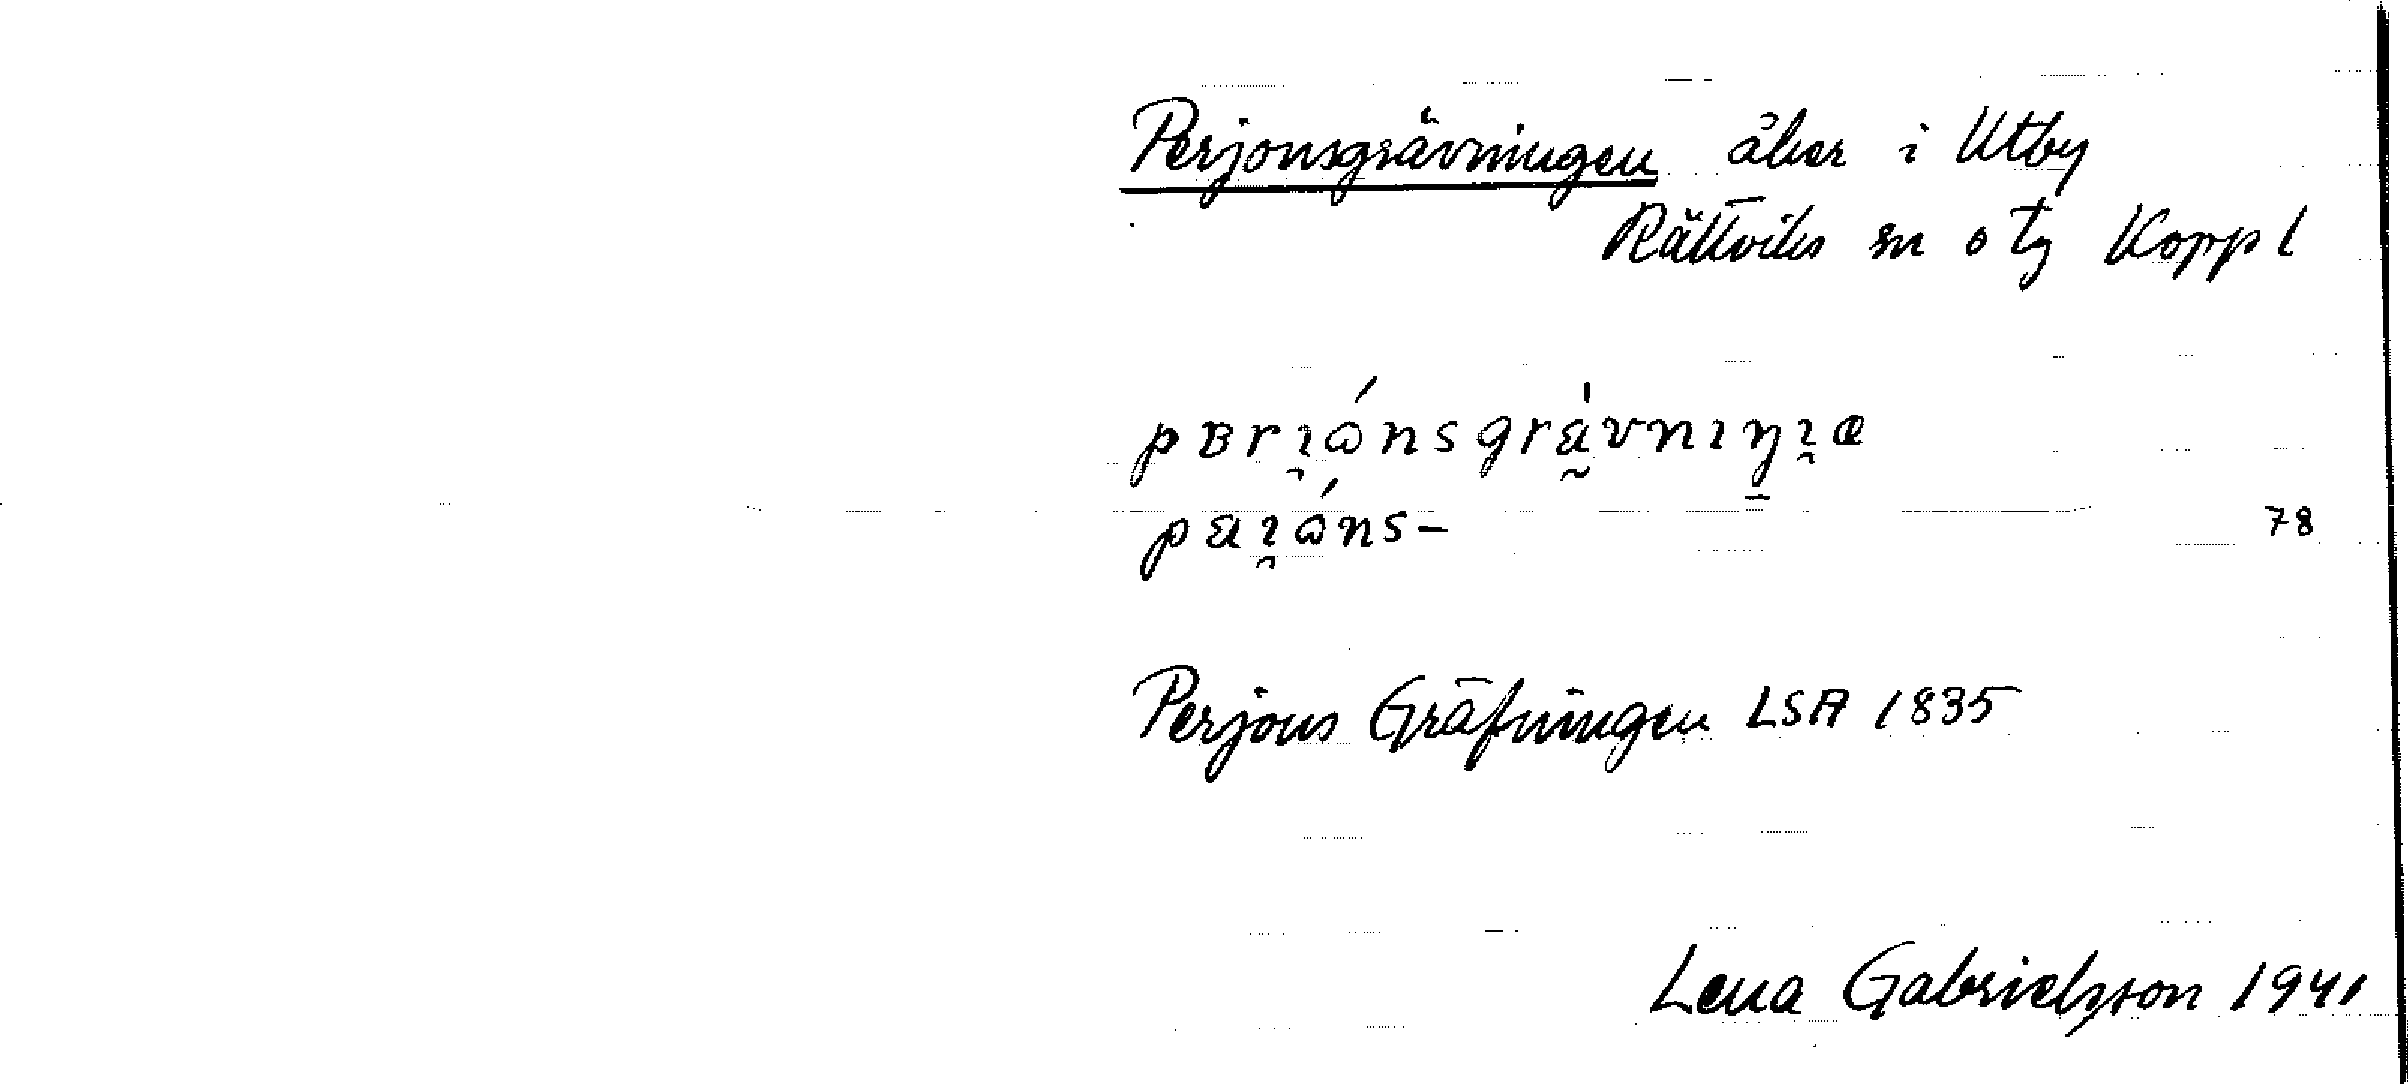 Perjonsgrävningen åker i Utby
Rättviks sn o tg Koppl
pɐrı̯ɷ́nsgrä̰́vnıŋı̯ɶ
päı̯ɷ́ns-
78
Perjons Gräfningen LSA 1835
Lena Gabrielsson 1941